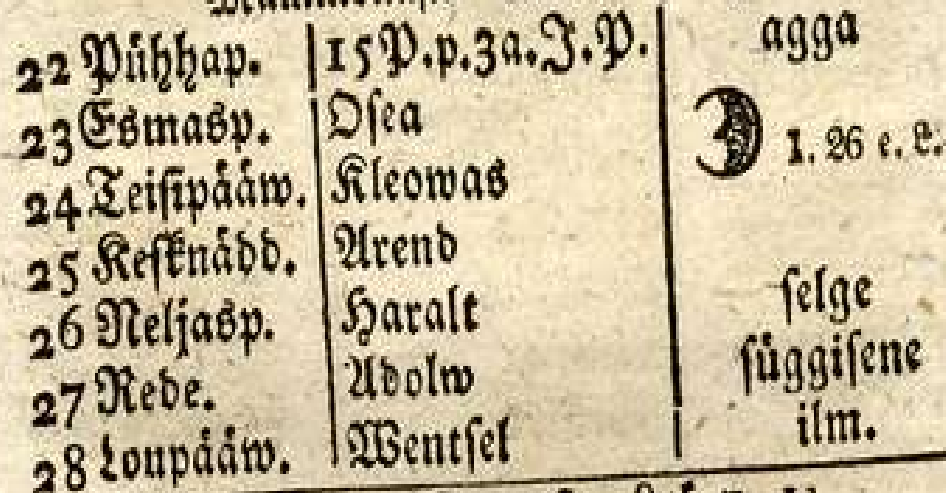 22 Pühhap. 15 P. p. 3a. J. P. agga
23 Esmasp. Osea 1. 26 e. L.
24 Teisipääw. Kleowas
25 Keſknädd. Arend
26 Neljasp. Haralt ſelge
27 Rede. Adolw ſüggiſene
28 Loupääw. Wentſel ilm.